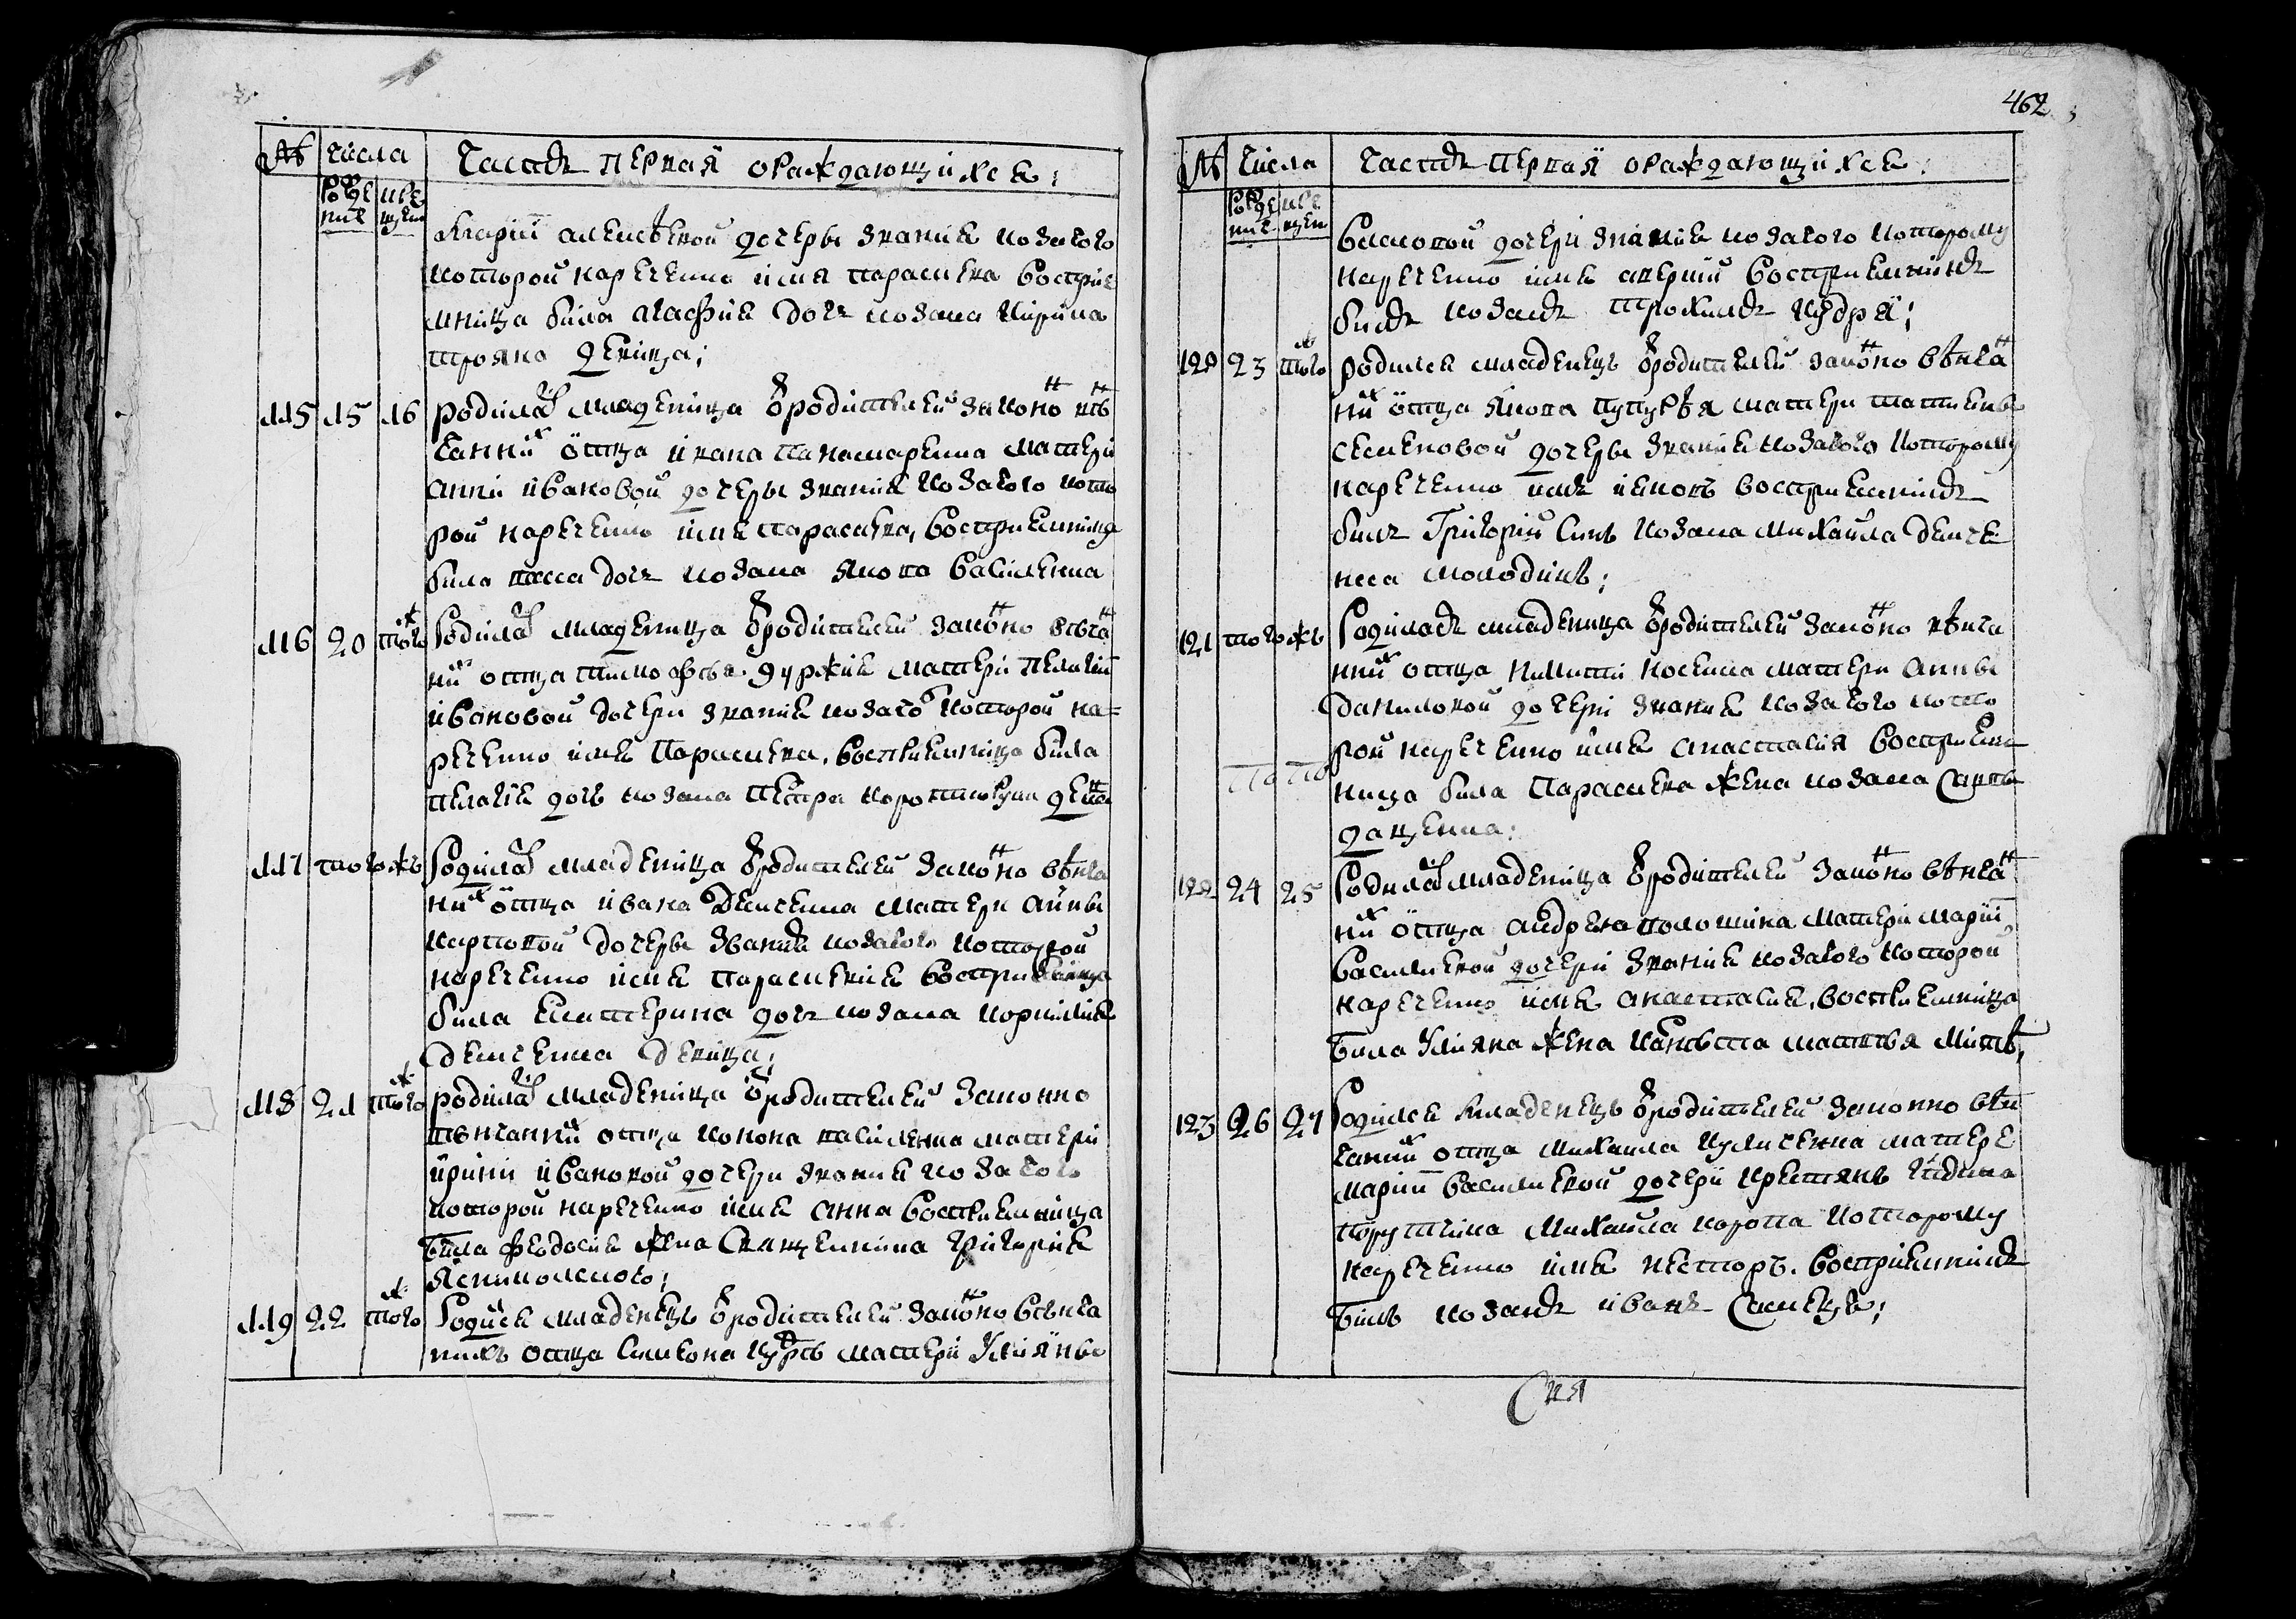 № числа Часть первая ораждающихся:
Роде ние кре щен
Марїи алексѣевой дочеры звания козачого
которой наречено имя параскева восприе
мница била агафия дочь козака Кирила
трояна девица;
115 15 16 родилас младеница ѿ родителей законно вѣн
чанних отца ивана панамаренка матери
анни ивановой дочеры звания козачого кото
рой наречено имя параскева, восприемница
била васса дочь козака якова василенка
116 20 того ж Родилас младеница ѿ родителей законно вѣнчан
них отца тимофѣя матери пелагии
ивановой дочери звания козачого которой на=
речено имя Параскева, восприемница била
пелагия дочь козака петра девица
117 того жъ Родилас младеница ѿ родителей законно вѣнча
них отца ивана Демченка матери анны
карповой дочеры звания козачого которой
наречено имя параскевия восприемница
била екатерина дочь козака корнилия
демченка девица;
118 21 того ж родилас младеница ѿ родителей законно
вѣнчанних отца конона василенка матери
ирини ивановой дочери звания козачого
которой наречено имя анна восприемница
била феодосия жена Священника григория
яснополского;
119 22 того ж Родился младенецъ ѿ родителей законно вѣнча
нихъ отца Симеона матери Улияны
462
№ числа Часть первая ораждающихся:
Роде ние кре щен
власовой дочери звания козачого которому
наречено имя аверкий восприемникъ
билъ козакъ трохимъ кудря;
120 23 того ж родился младенецъ ѿ родителей законно вѣнчан
них отца якова матери татияны
семеновой дочеры звания козачого которому
наречено имя иаковъ восприемникъ
билъ Григорий Синъ козака михайла демче
нка молодикъ;
121 того жъ Родиласъ младеница ѿ родителей законно вѣнча
нних отца никити носенка матери анны
даниловой дочери звания козачого кото
рой наречено имя анастасия восприем
ница била Параскева жена козака Савы
даценка:
122 24 25 Родилас младеница ѿ родителей законно вѣнчан
них отца андрея матери марии
василиевой дочери звания козачого которой
наречено имя анастасия, восприемница
била Улияна жена матвѣя
123 26 27 Родился младенецъ ѿ родителей законно вѣн
чаних отца михаила куличенка матере
марии василиевой дочерїи крестянъ
порутчика михаила которому
наречено имя несторъ. восприемникъ
билъ козакъ иванъ